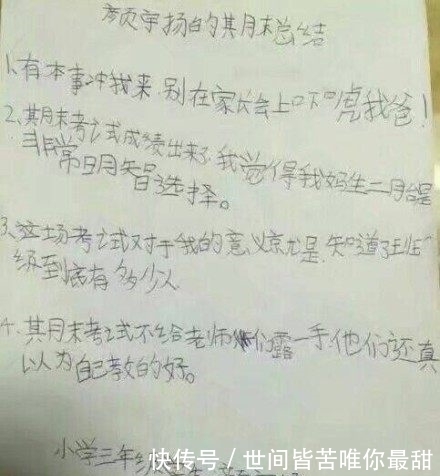 颜宇扬的期末总结
1、有本事冲我来,别在家长会上吓唬我爸!
2、期末考试成绩出来了,我觉得我妈生二胎是
非常明智选择。
3、这场考试对于我的意义就是,知道了班
级到底有多少人
4、期末考试不给老师们露一手,他们还真
以为自己教的好。
小学三年级
快传号 / 世间皆苦唯你最甜